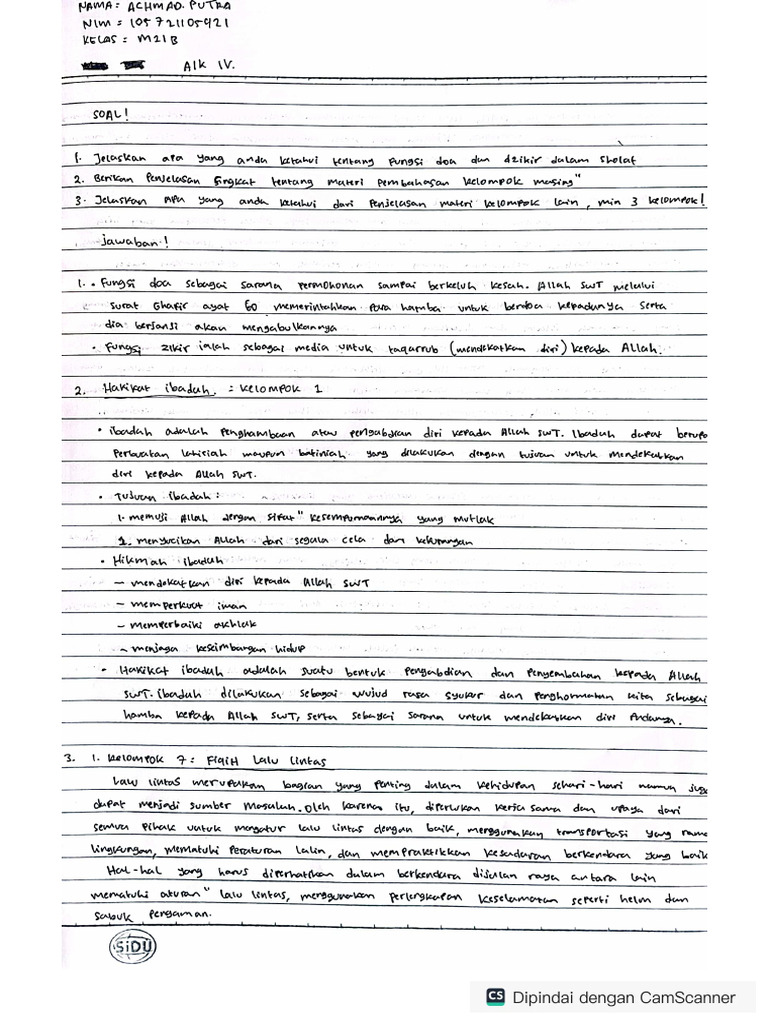 NAMA : ACHMAD. PUTRA
NIM = 105721105921
KELAS = M21B
AIK IV.
SOAL!
1. Jelaskan apa yang anda ketahui tentang fungsi doa dan dzikir dalam sholat
2. Berikan Penjelasan singkat tentang materi pembahasan kelompok masing"
3. Jelaskan apa yang anda ketahui dari Penjelasan materi kelompok lain, min 3 kelompok!
jawaban!
1. • Fungsi doa sebagai sarana permohonan sampai berkeluh kesah. Allah SWT melalui
surat Ghafir ayat 60 memerintahkan para hamba untuk berdoa kepadanya serta
dia berjanji akan mengabulkannya
• Fungsi zikir ialah sebagai media untuk taqarrub (mendekatkan diri) kepada Allah.
2. Hakikat ibadah. : Kelompok 1
• ibadah adalah penghambaan atau pengabdian diri kepada Allah SWT. Ibadah dapat berupa
Perbuatan lahiriah maupun batiniah yang dilakukan dengan tujuan untuk mendekatkan
diri kepada Allah SWT.
• Tujuan ibadah :
1. memuji Allah dengan sifat" kesempurnaannya yang mutlak
2. menyucikan Allah dari segala cela dan kekurangan
• Hikmah ibadah
– mendekatkan diri kepada Allah SWT
– memperkuat iman
– memperbaiki akhlak
– menjaga keseimbangan hidup
• Hakikat ibadah adalah suatu bentuk pengabdian dan Penyembahan kepada Allah
SWT. ibadah dilakukan sebagai wujud rasa syukur dan penghormatan kita sebagai
hamba kepada Allah SWT, serta sebagai sarana untuk mendekatkan diri Padanya.
3. 1. Kelompok 7 : Fiqih Lalu Lintas
Lalu lintas merupakan bagian yang penting dalam kehidupan sehari-hari namun juga
dapat menjadi sumber masalah. Oleh karena itu, diperlukan kerja sama dan upaya dari
semua pihak untuk mengatur lalu lintas dengan baik, menggunakan transportasi yang rama
lingkungan, mematuhi Peraturan lalin, dan mempraktikkan kesadaran berkendara yang baik
Hal-hal yang harus diperhatikan dalam berkendara dijalan raya antara lain
mematuhi aturan" lalu lintas, menggunakan perlengkapan keselamatan seperti helm dan
sabuk pengaman.
SiDU
CS Dipindai dengan CamScanner